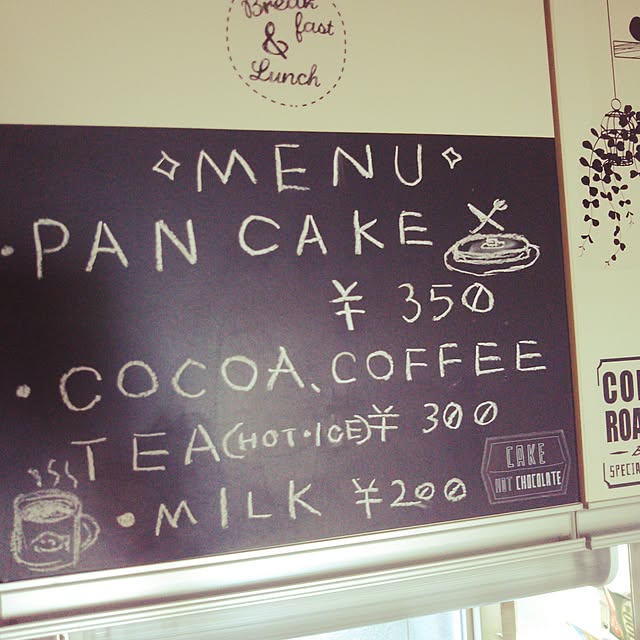 Break
fast
&
Lunch
MENU
・PAN CAKE
¥ 350
・COCOA、COFFEE
TEA(HOT・ICE)¥ 300
・MILK ¥200
CAKE
HOT CHOCOLATE